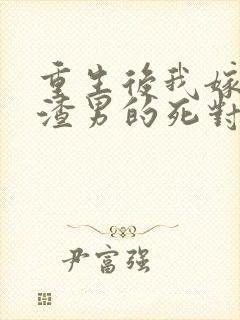 重生後我嫁
渣男的死對
尹富强